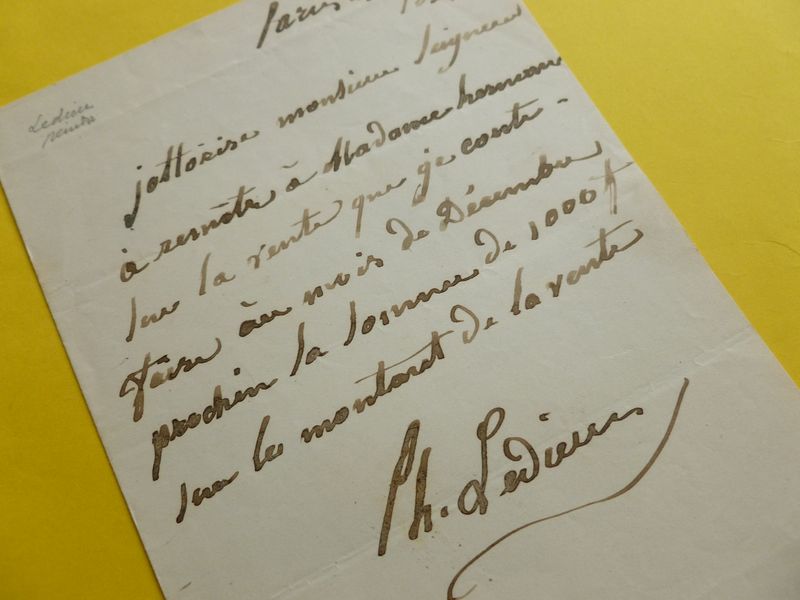 Paris
Ledieu
peintre
jottorise monsieur Seigneur
à remetre à Madame herman
sur la vente que je conte
faire au mois de Décembre
prochin la somme de 1000 f
sur le montant de la vente
Ph. Ledieu